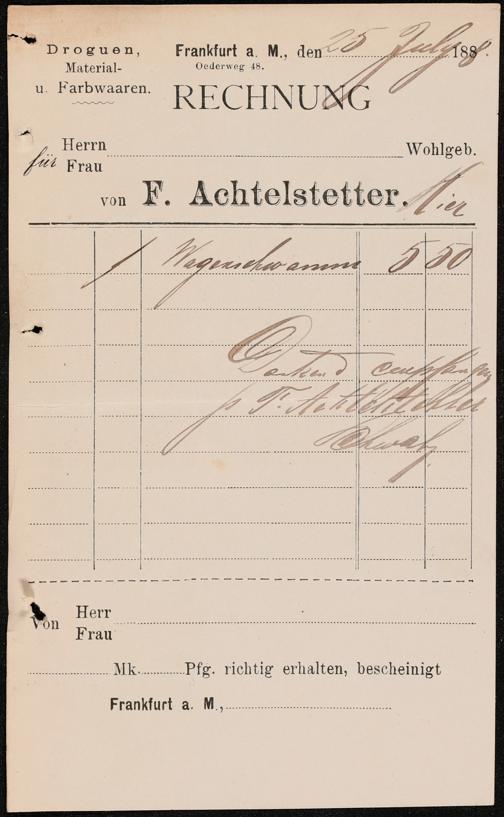 Droguen,
Material-
u. Farbwaaren.
Frankfurt a. M., den 25 July 1888.
Oederweg 48.
RECHNUNG
für Herrn
Frau
Wohlgeb.
von F. Achtelstetter. Hier
1 Wagenschwamm 5 50
Dankend empfangen
p F. Achtelstetter
Schwalz
Von Herr
Frau
Mk. Pfg. richtig erhalten, bescheinigt
Frankfurt a. M.,